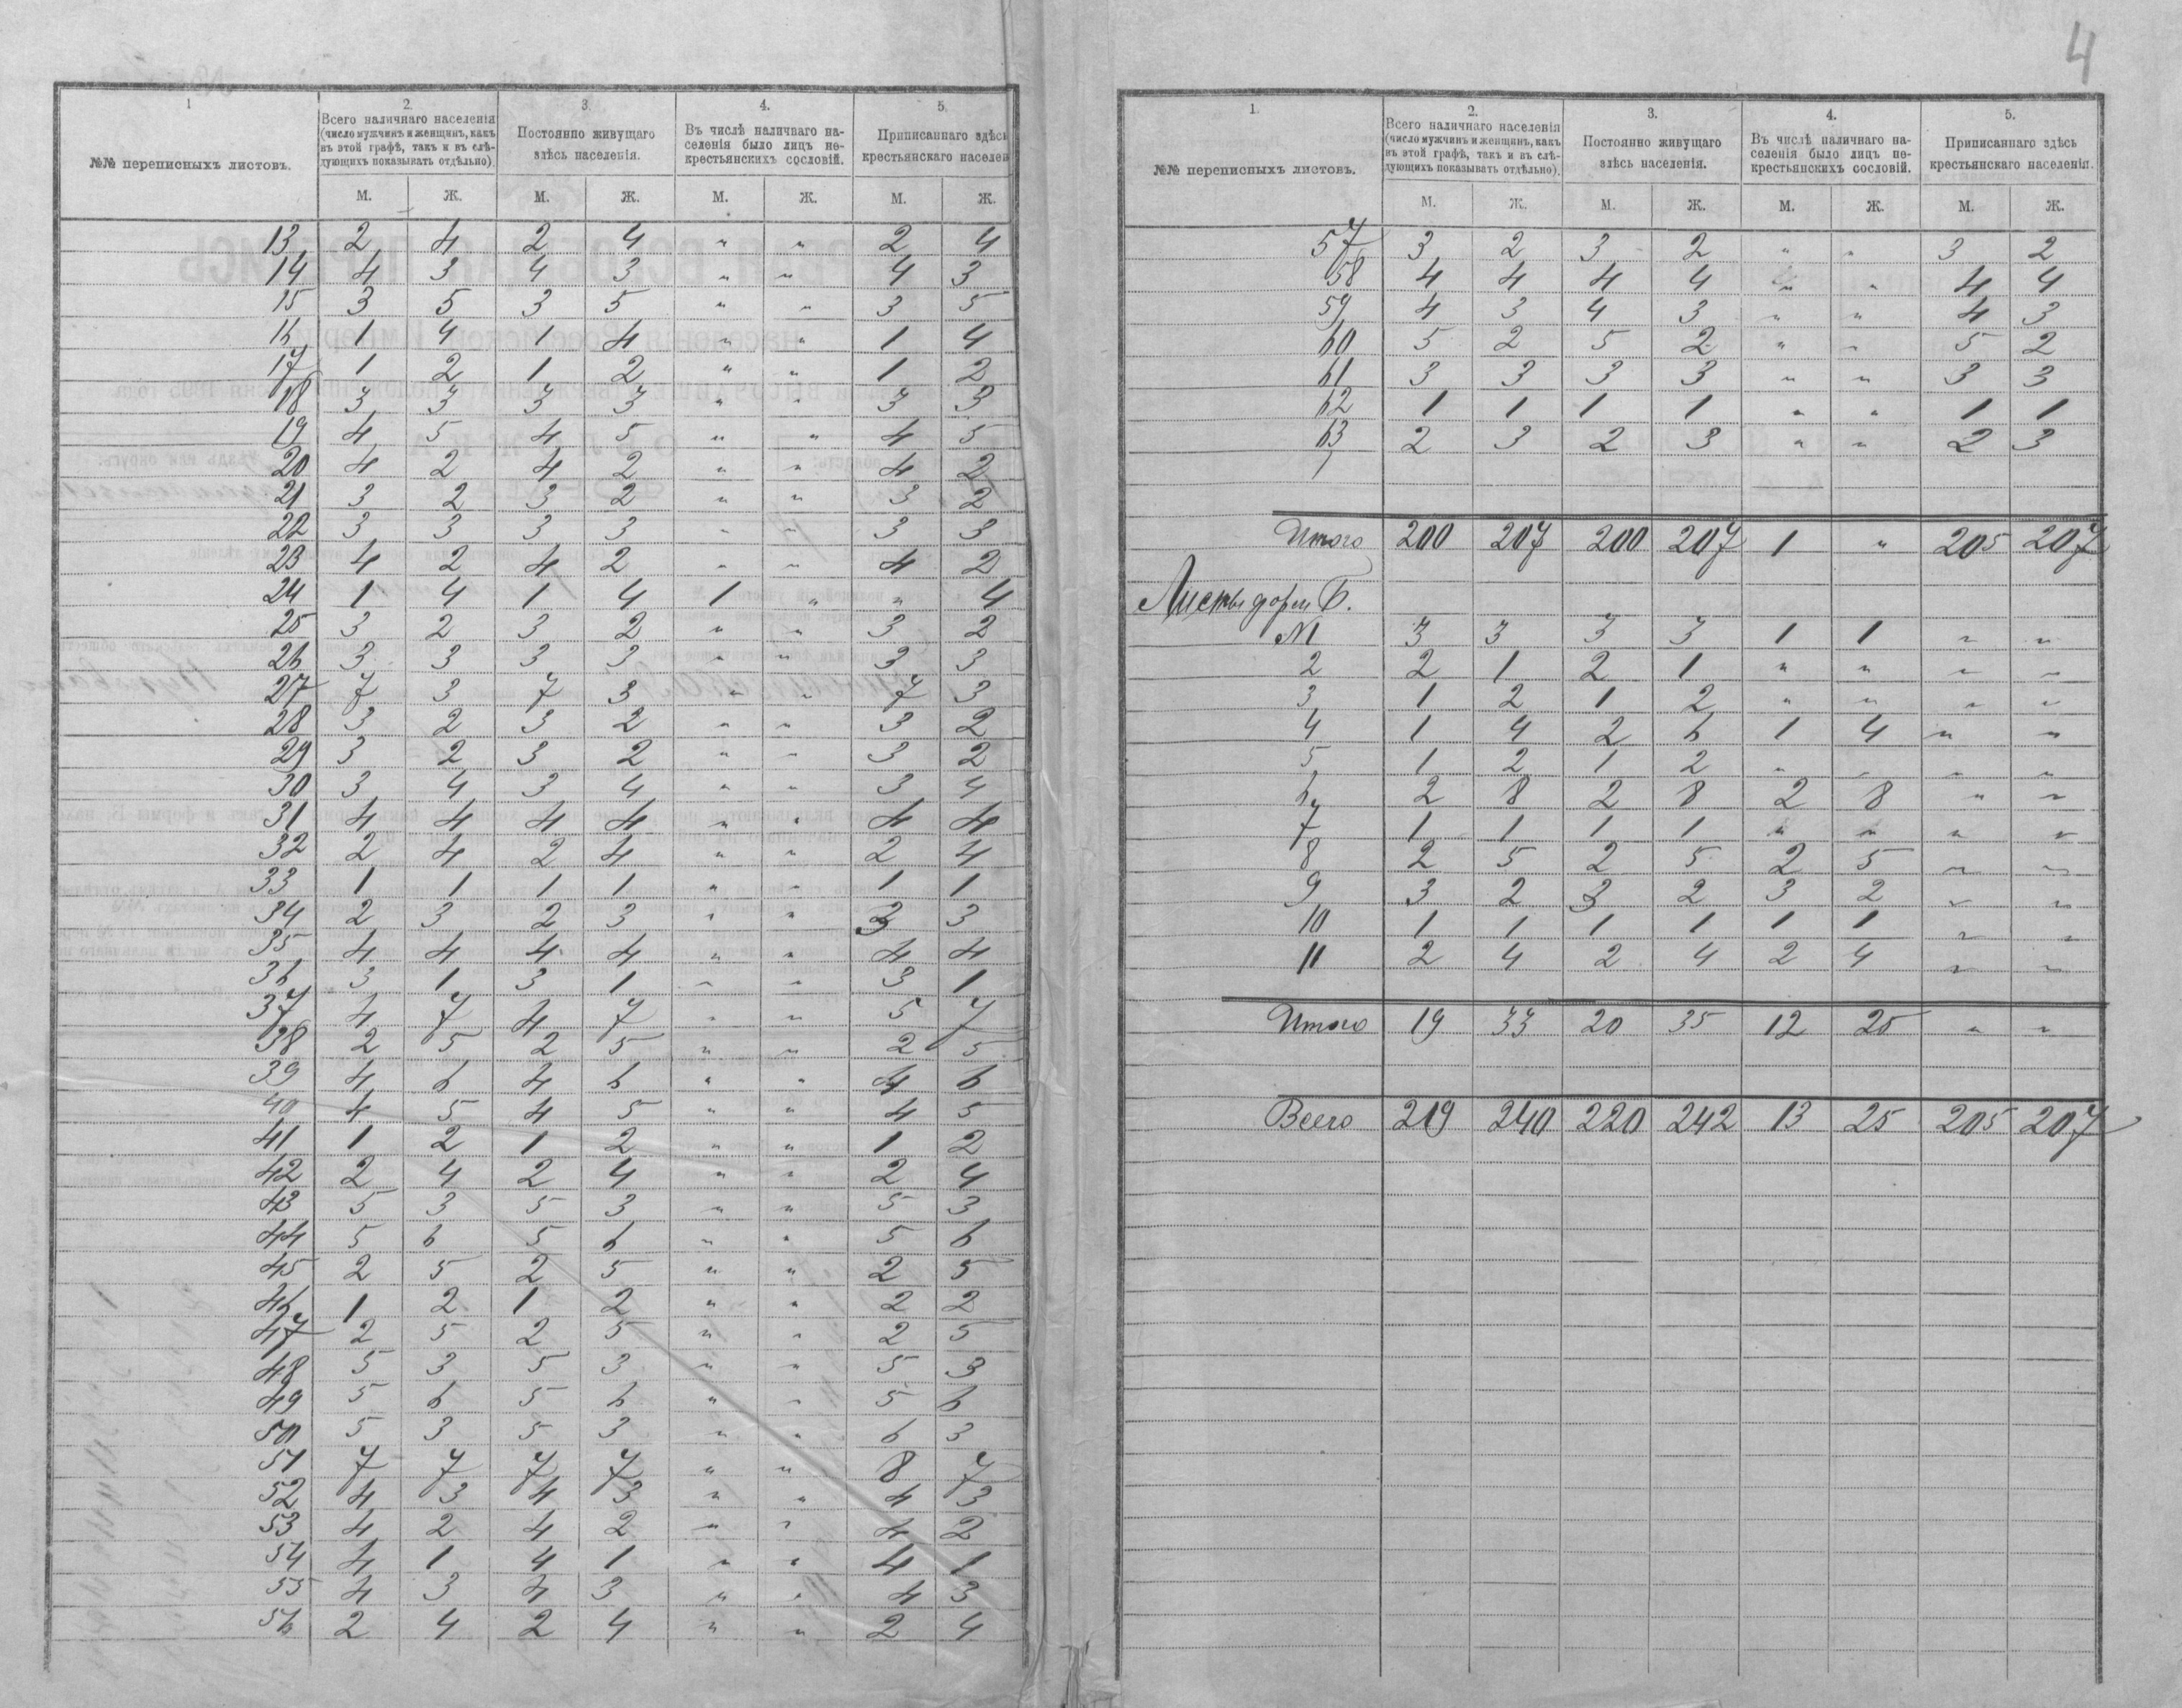 1
2.
3.
4.
5.
№№ переписныхъ листовъ.
Всего наличнаго населенія (число мужчинъ и женщинъ, какъ въ этой графѣ, такъ и въ слѣ-дующихъ показывать отдѣльно).
Постоянно живущаго здѣсь населенія.
Въ числѣ наличнаго на-селенія было лицъ не-крестьянскихъ сословій.
Приписаннаго здѣсь крестьянскаго населен
М. Ж. М. Ж. М. Ж. М. Ж.
13 2 4 2 4 " " 2 4
14 4 3 4 3 " " 4 3
15 3 5 3 5 " " 3 5
16 1 4 1 4 " " 1 4
17 1 2 1 2 " " 1 2
18 3 3 3 3 " " 3 3
19 4 5 4 5 " " 4 5
20 4 2 4 2 " " 4 2
21 3 2 3 2 " " 3 2
22 3 3 3 3 " " 3 3
23 4 2 4 2 " " 4 2
24 1 4 1 4 1 " " 4
25 3 2 3 2 " " 3 2
26 3 3 3 3 " " 3 3
27 7 3 7 3 " " 7 3
28 3 2 3 2 " " 3 2
29 3 2 3 2 " " 3 2
30 3 4 3 4 " " 3 4
31 4 4 4 4 " " 4 4
32 2 4 2 4 " " 2 4
33 1 1 1 1 " " 1 1
34 2 3 2 3 " " 3 3
35 4 4 4 4 " " 4 4
36 3 1 3 1 " " 3 1
37 4 7 4 7 " " 5 7
38 2 5 2 5 " " 2 5
39 4 6 4 6 " " 4 6
40 4 5 4 5 " " 4 5
41 1 2 1 2 " " 1 2
42 2 4 2 4 " " 2 4
43 5 3 5 3 " " 5 3
44 5 6 5 6 " " 5 6
45 2 5 2 5 " " 2 5
46 1 2 1 2 " " 2 2
47 2 5 2 5 " " 2 5
48 5 3 5 3 " " 5 3
49 5 6 5 6 " " 5 6
50 5 3 5 3 " " 6 3
51 7 7 7 7 " " 8 7
52 4 3 4 3 " " 4 3
53 4 2 4 2 " " 4 2
54 4 1 4 1 " " 4 1
55 4 3 4 3 " " 4 3
56 2 4 2 4 " " 2 4
4
1.
2.
3.
4.
5.
№№ переписныхъ листовъ.
Всего наличнаго населенія (число мужчинъ и женщинъ, какъ въ этой графѣ, такъ и въ слѣ-дующихъ показывать отдѣльно).
Постоянно живущаго здѣсь населенія.
Въ числѣ наличнаго на-селенія было лицъ не-крестьянскихъ сословій.
Приписаннаго здѣсь крестьянскаго населенія.
М. Ж. М. Ж. М. Ж. М. Ж.
57 3 2 3 2 " " 3 2
58 4 4 4 4 " " 4 4
59 4 3 4 3 " " 4 3
60 5 2 5 2 " " 5 2
61 3 3 3 3 " " 3 3
62 1 1 1 1 " " 1 1
63 2 3 2 3 " " 2 3
Итого 200 207 200 207 1 " 205 207
Листы форм Б.
№1 3 3 3 3 1 1 " "
2 2 1 2 1 " " " "
3 1 2 1 2 " " " "
4 1 4 2 6 1 4 " "
5 1 2 1 2 " " " "
6 2 8 2 8 2 8 " "
7 1 1 1 1 " " " "
8 2 5 2 5 2 5 " "
9 3 2 3 2 3 2 " "
10 1 1 1 1 1 1 " "
11 2 4 2 4 2 4 " "
Итого 19 33 20 35 12 25 " "
Всего 219 240 220 242 13 25 205 207